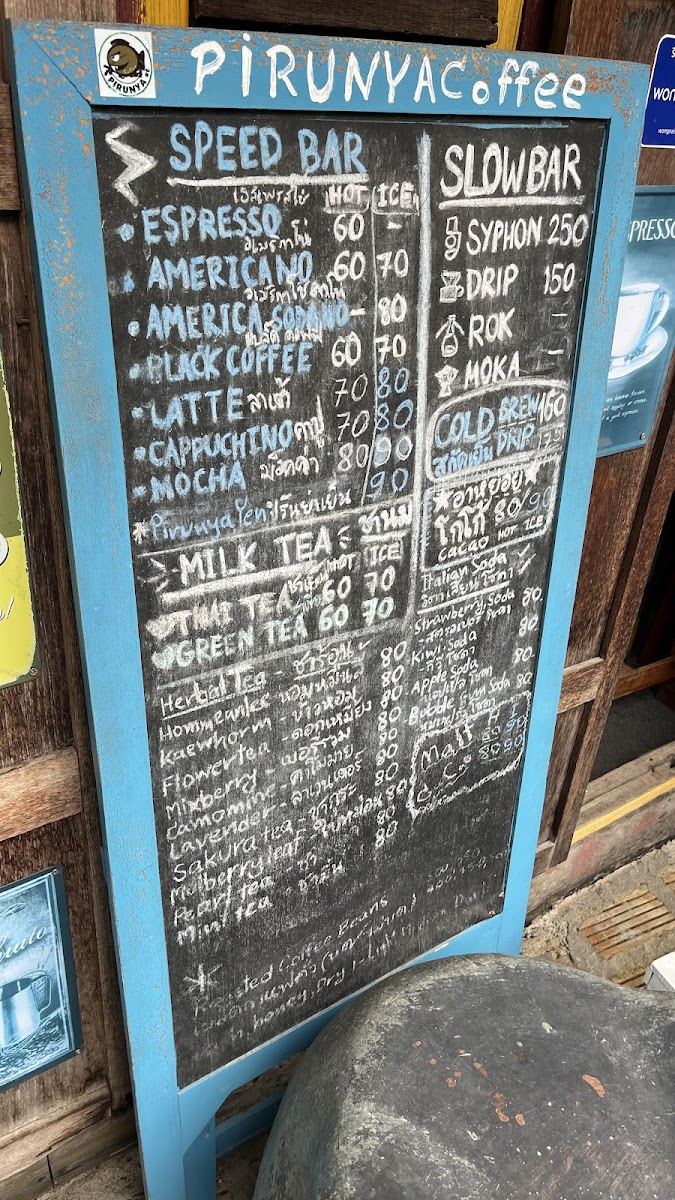 PIRUNYA Coffee
PIRUNYA
SPEED BAR
HOT ICE
ESPRESSO 60 -
AMERICANO 60 70
AMERICA SODANO - 80
BLACK COFFEE 60 70
LATTE ลาเต้ 70 80
CAPPUCHINO คาปู 70 80
MOCHA มอคค่า 80 90
Pirunya Yen พิรันย่าเย็น 90
MILK TEA ชานม
HOT ICE
THAI TEA 60 70
GREEN TEA 60 70
Herbal Tea - ชาร้อน
Hommeanlee - หอมหมื่นลี้ 80
Kaewhorm - ข้าวหอม 80
Flower tea - ดอกเหมี้ยง 80
Mixberry - เบอร์รี่รวม 80
Camomine - คาโมมาย 80
Lavender - ลาเวนเดอร์ 80
Sakura tea - ซากุระ 80
Mulberry leaf 80
Pearl tea 80
Mint tea 80
Roasted Coffee Beans
honey, Dry
SLOWBAR
SYPHON 250
DRIP 150
ROK -
MOKA -
COLD BREW 160
สกัดเย็น DRIP
อาหย่อย
โกโก้ 80/90
CACAO HOT ICE
Italian Soda
อิตาเลี่ยน โซดา
Strawberry Soda 80
สตรอเบอรี่ โซดา
Kiwi Soda 80
กีวี่ โซดา
Apple Soda 80
แอปเปิ้ล โซดา
Bubble Gum Soda 80
H I
Malt 80 90
CoCo 80 90